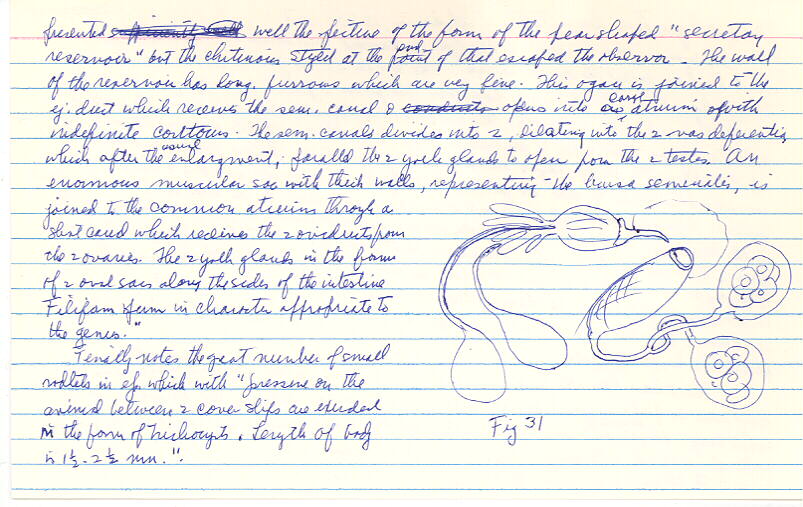 presented well the picture of the form of the pear shaped "secretory
reservoir" but the chitinous stylet at the end of that escaped the observor. The wall
of the reservoir has long. furrows which are very fine. This organ is joined to the
ej. duct which receives the sem. canal & opens into atrium with
indefinite contours. The sem. canals divides into 2, dilating into the 2 vas deferentia,
which after the usual enlargment, parallel the 2 yolk glands to open from the 2 testes. An
enormous muscular sac with thick walls, representing the bursa seminalis, is
joined to the common atrium through a
short canal which receives the 2 oviducts from
the 2 ovaries. The 2 yolk glands in the form
of 2 oval sacs along the sides of the intestine
Filiform sperm in character appropriate to
the genus."
Finally notes the great number of small
rodlets in ep. which with "pressure on the
animal between 2 cover slips are extruded
in the form of trichocysts. Length of body
is 1½-2½ mm."
Fig 31